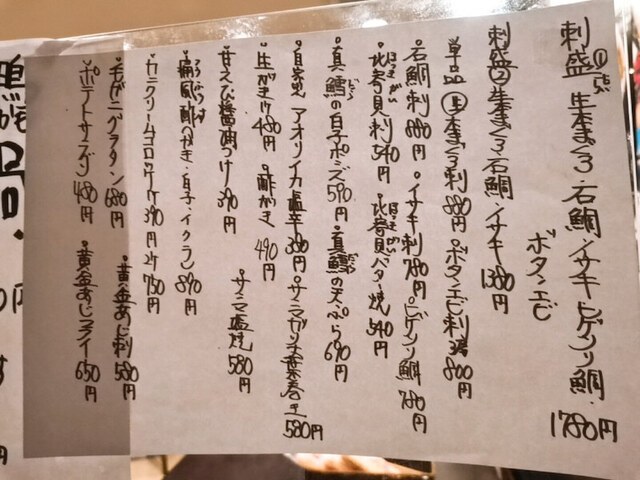 刺盛① 生本まぐろ・石鯛・イサキ・ヒゲソリ鯛・
ボタンエビ
1780円
刺盛② 生本まぐろ・石鯛・イサキ 1380円
単品 生本まぐろ刺 880円・ボタンエビ刺 800円
石鯛刺 880円・イサキ刺 780円・ヒゲソリ鯛 780円
北寄貝刺 540円・北寄貝バター焼 540円
真鱈の白子ポン酢 590円・真鱈の天ぷら 690円
自家製 アオリイカ塩辛 380円・サンマガリチー葉巻き 580円
生がき1ケ 480円・酢がき 490円
サンマ塩焼 580円
甘えび醤油づけ 390円
痛風盛 かき・白子・イクラ 890円
カニクリームコロッケ 1ケ 390円 2ケ 780円
毛ガニグラタン 680円・黄金あじ刺 580円
ポテトサラダ 480円・黄金あじフライ 650円